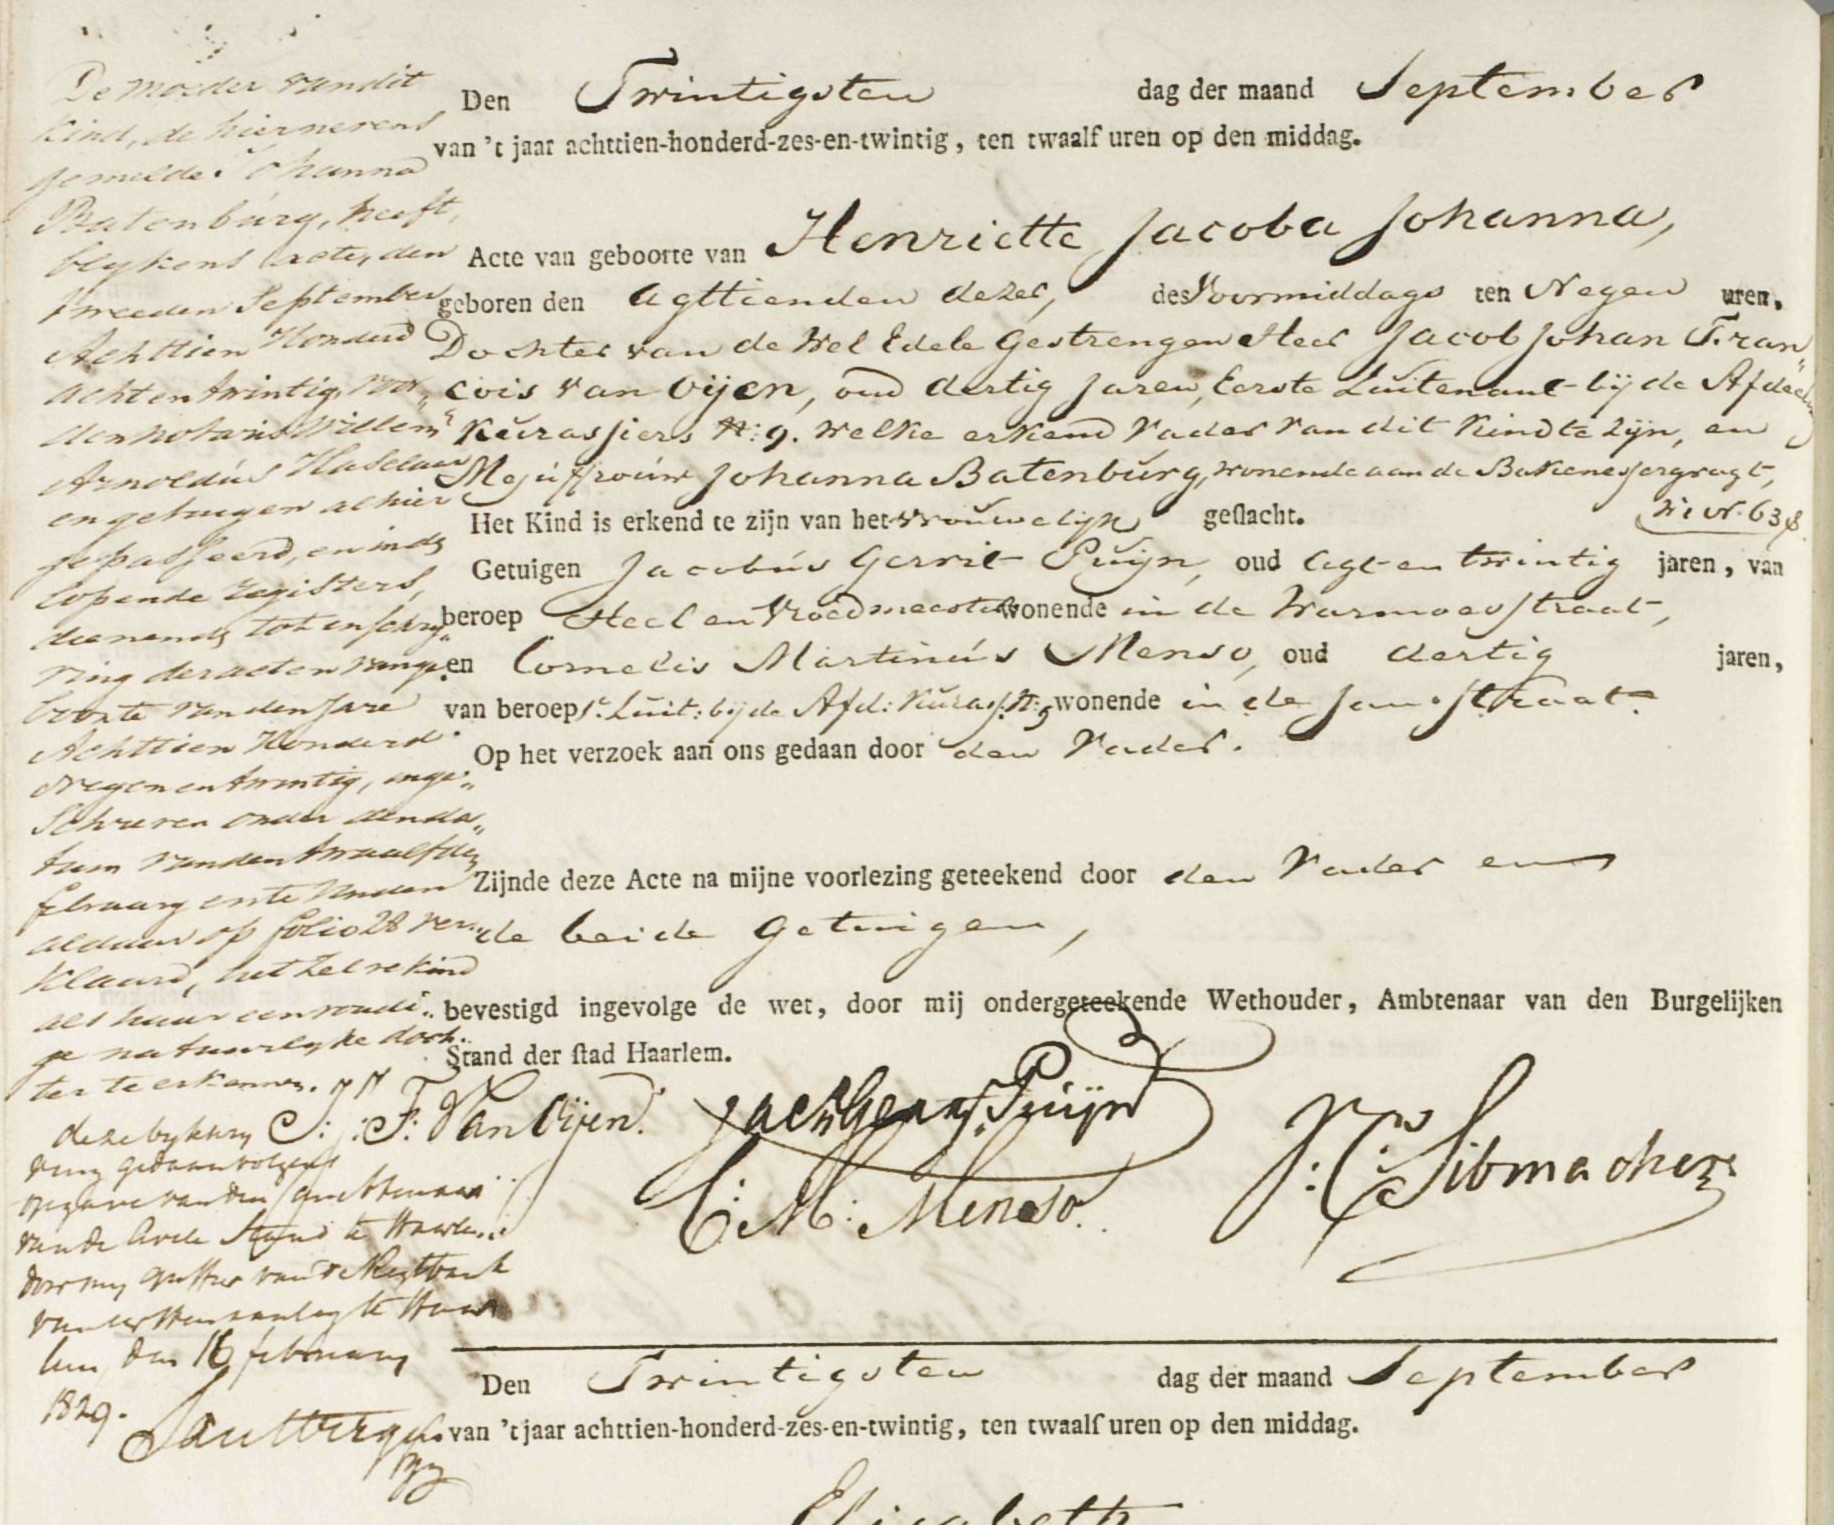 De moeder van dit
kind, de hiernevens
gemelde Johanna
Batenburg, heeft,
blykens acte, den
tweeden September
Achttien Honderd
acht en twintig, voor„
den notaris Willem
Arnoldús Haselaar
en getuigen alhier
gepasseerd, en in de
lopende registers,
dienende tot inschry„
ving der acten van ge„
boorte van den jare
Achttien Honderd
negen en twintig, inge„
schreven onder den da„
tum van den twaalfden
february en te vinden
aldaar op folio 28 ver„
klaard, het zelve kind
als haar eenvoudi„
ge natuurlyke doch„
ter te erkennen.
deze byschry
ving gedaan volgens
opgave van den Ambtenaar
van de Civile Stand te Haarlem
door my griffier van de Regtbank
van eersten aanleg te Haar
lem, den 16 february
1829.
Den Twintigsten dag der maand September
van 't jaar achttien-honderd-zes-en-twintig, ten twaalf uren op den middag.
Acte van geboorte van Henriette Jacoba Johanna,
geboren den Agttienden dezer, des Voormiddags ten Negen uren.
Dochter van de Wel Edele Gestrengen Heer Jacob Johan Fran„
cois van Oijen, oud dertig Jaren, Eerste Luitenant bij de Afdeeling
Kúrassiers N: 9. welke erkend Vader van dit Kind te zijn, en
Mejúffroúw Johanna Batenbúrg, wonende aan de Bakenessergragt,
Wi N. 638.
Het Kind is erkend te zijn van het vroúwelijk geslacht.
Getuigen Jacobús Gerrit Púijn, oud Agt en twintig jaren, van
beroep Heel en Vroedmeester wonende in de Warmoesstraat,
en Cornelis Martinús Menso, oud dertig jaren,
van beroep 1e. Luit: bij de Afd: Kúrass: N: 9 wonende in de Jansstraat.
Op het verzoek aan ons gedaan door den Vader.
Zijnde deze Acte na mijne voorlezing geteekend door den Vader en
de beide Getuigen,
bevestigd ingevolge de wet, door mij ondergeteekende Wethouder, Ambtenaar van den Burgelijken
Stand der stad Haarlem.
J: J: F: Van Oijen.
Jacs. Gerrit Púijn
C: M: Menso.
J: C: Sibmacher
Den Twintigsten dag der maand September
van 't jaar achttien-honderd-zes-en-twintig, ten twaalf uren op den middag.
Elisabeth